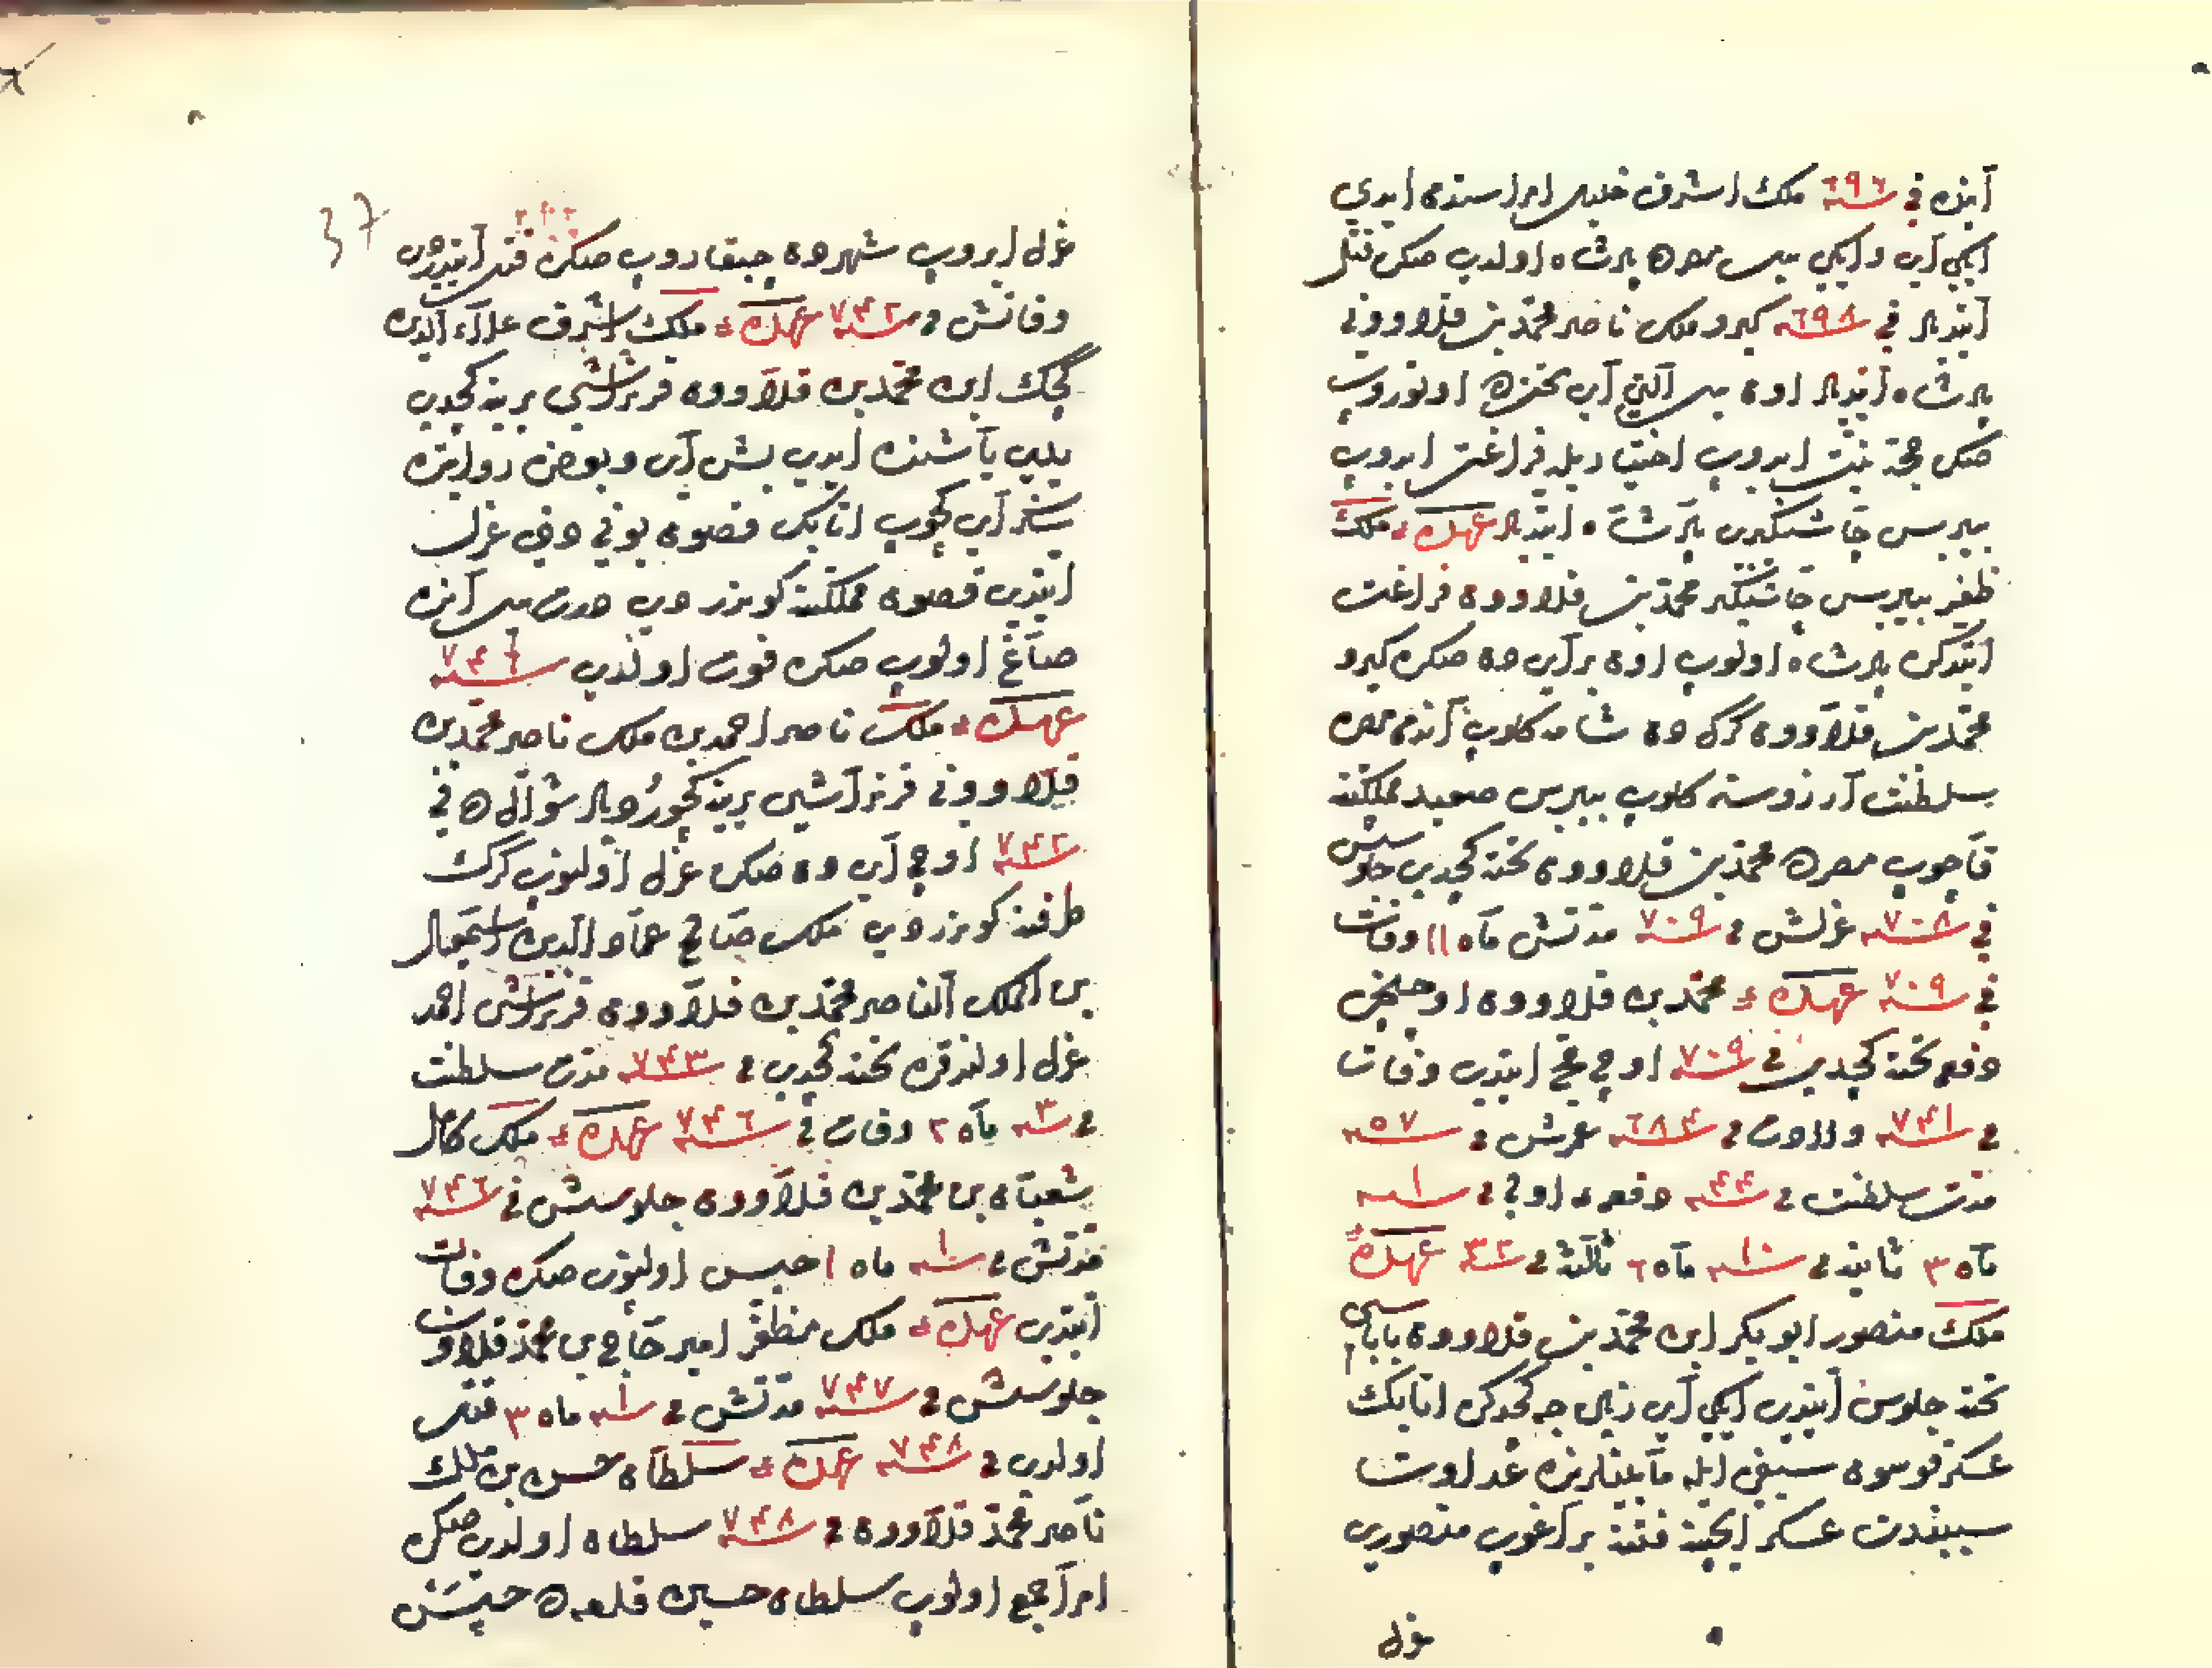 آینده فی سنه ٦٩٦ ملك اشرف خلیل امراسنده ایدی
ایکی آی و ایکی ییل مصرده پادشاه اولدی صکره قتل
ایتدیلر فی سنه ٦٩٨ کیرو ملك ناصر محمد بن قلاوونی
پادشاه ایتدیلر اون ییل آلتی آی تختده اوتوروب
صکره حجه نیت ایدوب اختیاریله فراغت ایدوب
بیبرس چاشنکیری پادشاه ایتدیلر عهد ملك
ظفر بیبرس چاشنکیر محمد بن قلاوون فراغت
ایتدکده پادشاه اولوب اون بر آی دن صکره کیرو
محمد بن قلاوون کرك دن شامه کلوب آندن مصره
سلطنت آرزوسنه کلوب بیبرس صعید مملکتنه
قاچوب مصرده محمد بن قلاوون تخته کچدی جلوسش
فی سنه ٧٠٨ عزلش فی سنه ٧٠٩ مدتش ماه ١١ وفات
فی سنه ٧٠٩ عهد محمد بن قلاوون اوچنجی
دفعه تخته کچدی فی سنه ٧٠٩ اوچ حج ایتدی وفات
فی سنه ٧٤١ ولادت فی سنه ٦٨٤ عمرش فی سنه ٥٧
مدت سلطنت فی سنه ٤٤ دفعه اولی فی سنه ١
ماه ٣ ثانیه فی سنه ١٠ ماه ٦ ثالثه فی سنه ٣٢ عهد
ملك منصور ابو بکر ابن محمد بن قلاوون باباسی
تخته جلوس ایتدی ایکی آی زمانی جه کچدکده اتابك
عسکر قوسون سیفی ایله مابینلرنده عداوت
سببندن عسکر ایچنه فتنه براغوب منصوری
عزل
37
عزل ایدوب شهردن چیقاروب صکره قتل ایتدردی
وفاتش فی سنه ٧٤٢ عهد ملك اشرف علاء الدین
کجك ابن محمد بن قلاوون قرنداشی یرینه کچدی
یدی یاشنده ایدی بش آی و بعض روایتده
سکز آی کچوب اتابك قصون بونی دخی عزل
ایتدی قصون مملکتنه کوندردی درت ییل آنده
صاغ اولوب صکره فوت اولدی سنه ٧٤٦
عهد ملك ناصر احمد بن ملك ناصر محمد بن
قلاوونی قرنداشی یرینه کچوردیلر شوالده فی
سنه ٧٤٢ اوچ آی دن صکره عزل اولنوب کرك
طرفنه کوندردی ملك صالح عماد الدین اسمعیل
بن الملك الناصر محمد بن قلاوون قرنداشی احمد
عزل اولندقده تخته کچدی فی سنه ٧٤٣ مدت سلطنت
فی سنه ٣ ماه ٢ وفات فی سنه ٧٤٦ عهد ملك کامل
شعبان بن محمد بن قلاوون جلوسش فی سنه ٧٤٦
مدتش فی سنه ١ ماه ١ حبس اولنوب صکره وفات
ایتدی عهد ملك مظفر امیر حاجی بن محمد قلاوون
جلوسش فی سنه ٧٤٧ مدتش فی سنه ١ ماه ٣ قتل
اولدی فی سنه ٧٤٨ عهد سلطان حسن بن ملك
ناصر محمد قلاوون فی سنه ٧٤٨ سلطان اولدی صکره
امرا جمع اولوب سلطان حسین قلعه ده حبس